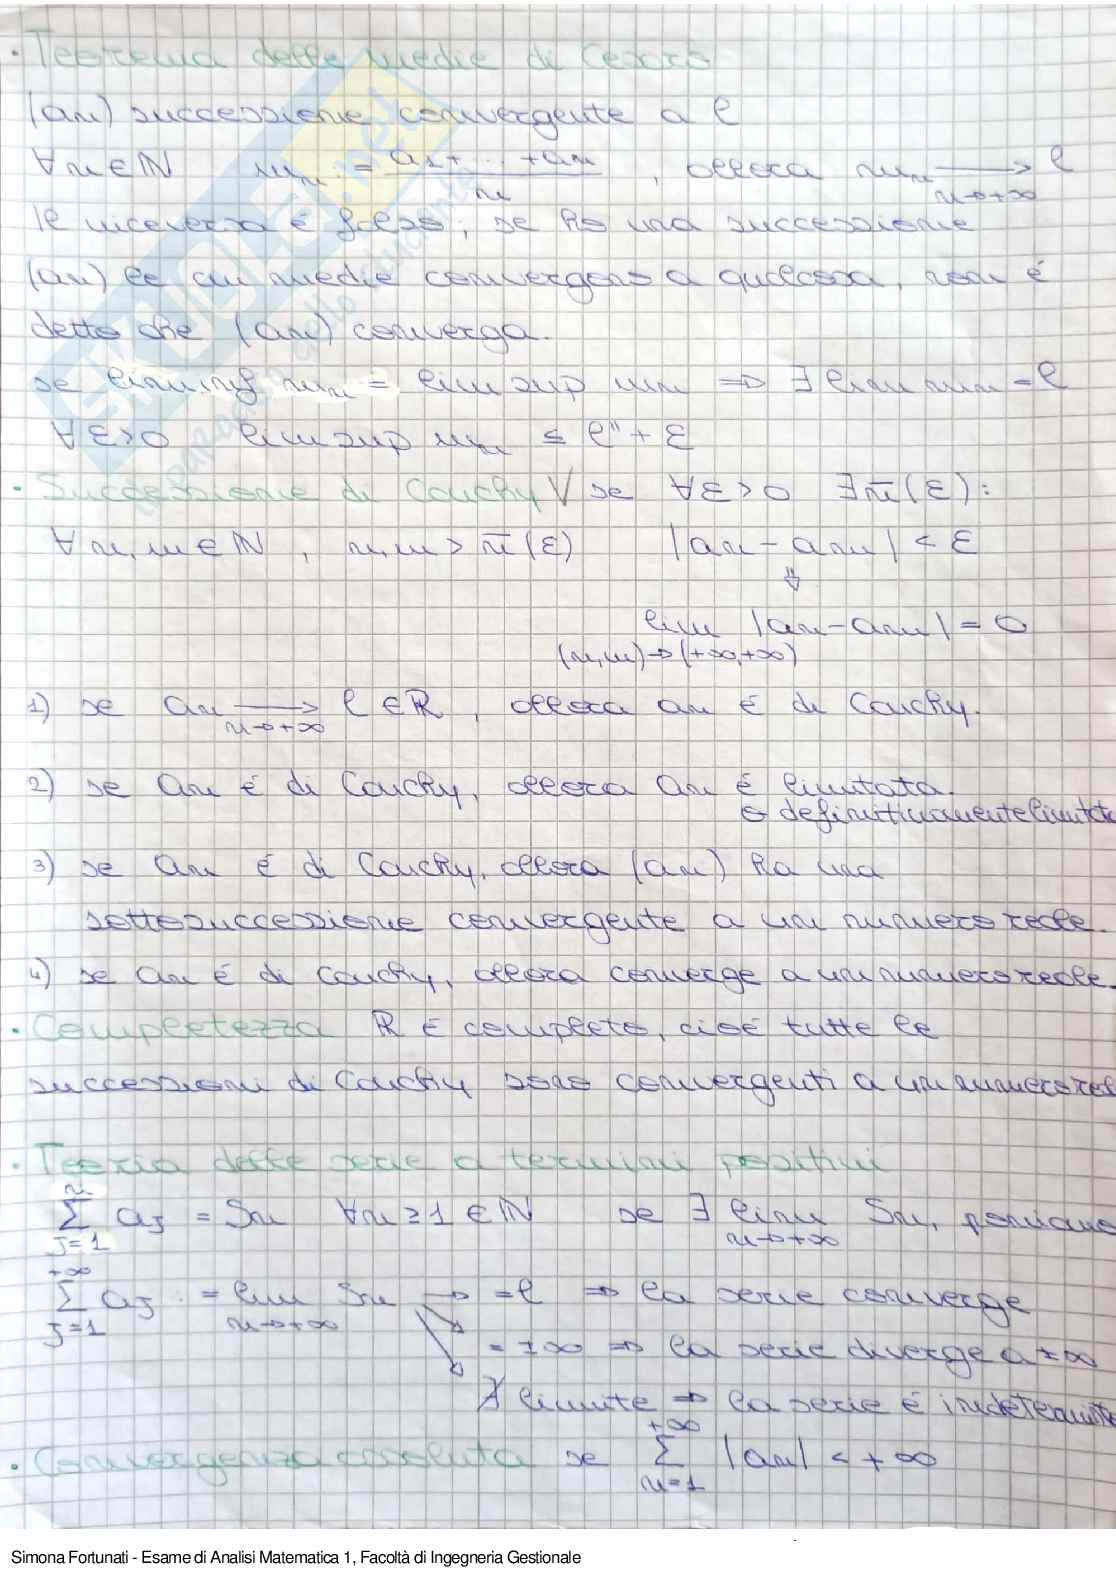 • Teorema delle medie di Cesaro
(an) successione convergente a l
∀n∈ℕ mn = a1+...+an / n , allora mn → l n→+∞
Il viceversa è falso; se ho una successione
(an) le cui medie convergono a qualcosa, non è
detto che (an) converga.
se lim inf mn = lim sup mn ⇒ ∃ lim mn = l
∀ε>0 lim sup mn ≤ l" + ε
• Successione di Cauchy V se ∀ε>0 ∃n̄(ε):
∀n,m∈ℕ, n,m > n̄(ε) |an-am| < ε
⇓
lim |an-am| = 0
(n,m)→(+∞,+∞)
1) se an → l∈ℝ, allora an è di Cauchy.
n→+∞
2) se an è di Cauchy, allora an è limitata.
o definitivamente limitata
3) se an è di Cauchy, allora (an) ha una
sottosuccessione convergente a un numero reale.
4) se an è di Cauchy, allora converge a un numero reale.
• Completezza ℝ è completo, cioè tutte le
successioni di Cauchy sono convergenti a un numero real
• Teoria delle serie a termini positivi
n Σ j=1 aj = Sn ∀n≥1∈ℕ se ∃ lim n→+∞ Sn, poniamo
+∞ Σ j=1 aj = lim n→+∞ Sn → =l ⇒ la serie converge
= ±∞ ⇒ la serie diverge a ±∞
∄ limite ⇒ la serie è indetermin
• Convergenza assoluta se +∞ Σ n=1 |an| < +∞
Simona Fortunati - Esame di Analisi Matematica 1, Facoltà di Ingegneria Gestionale